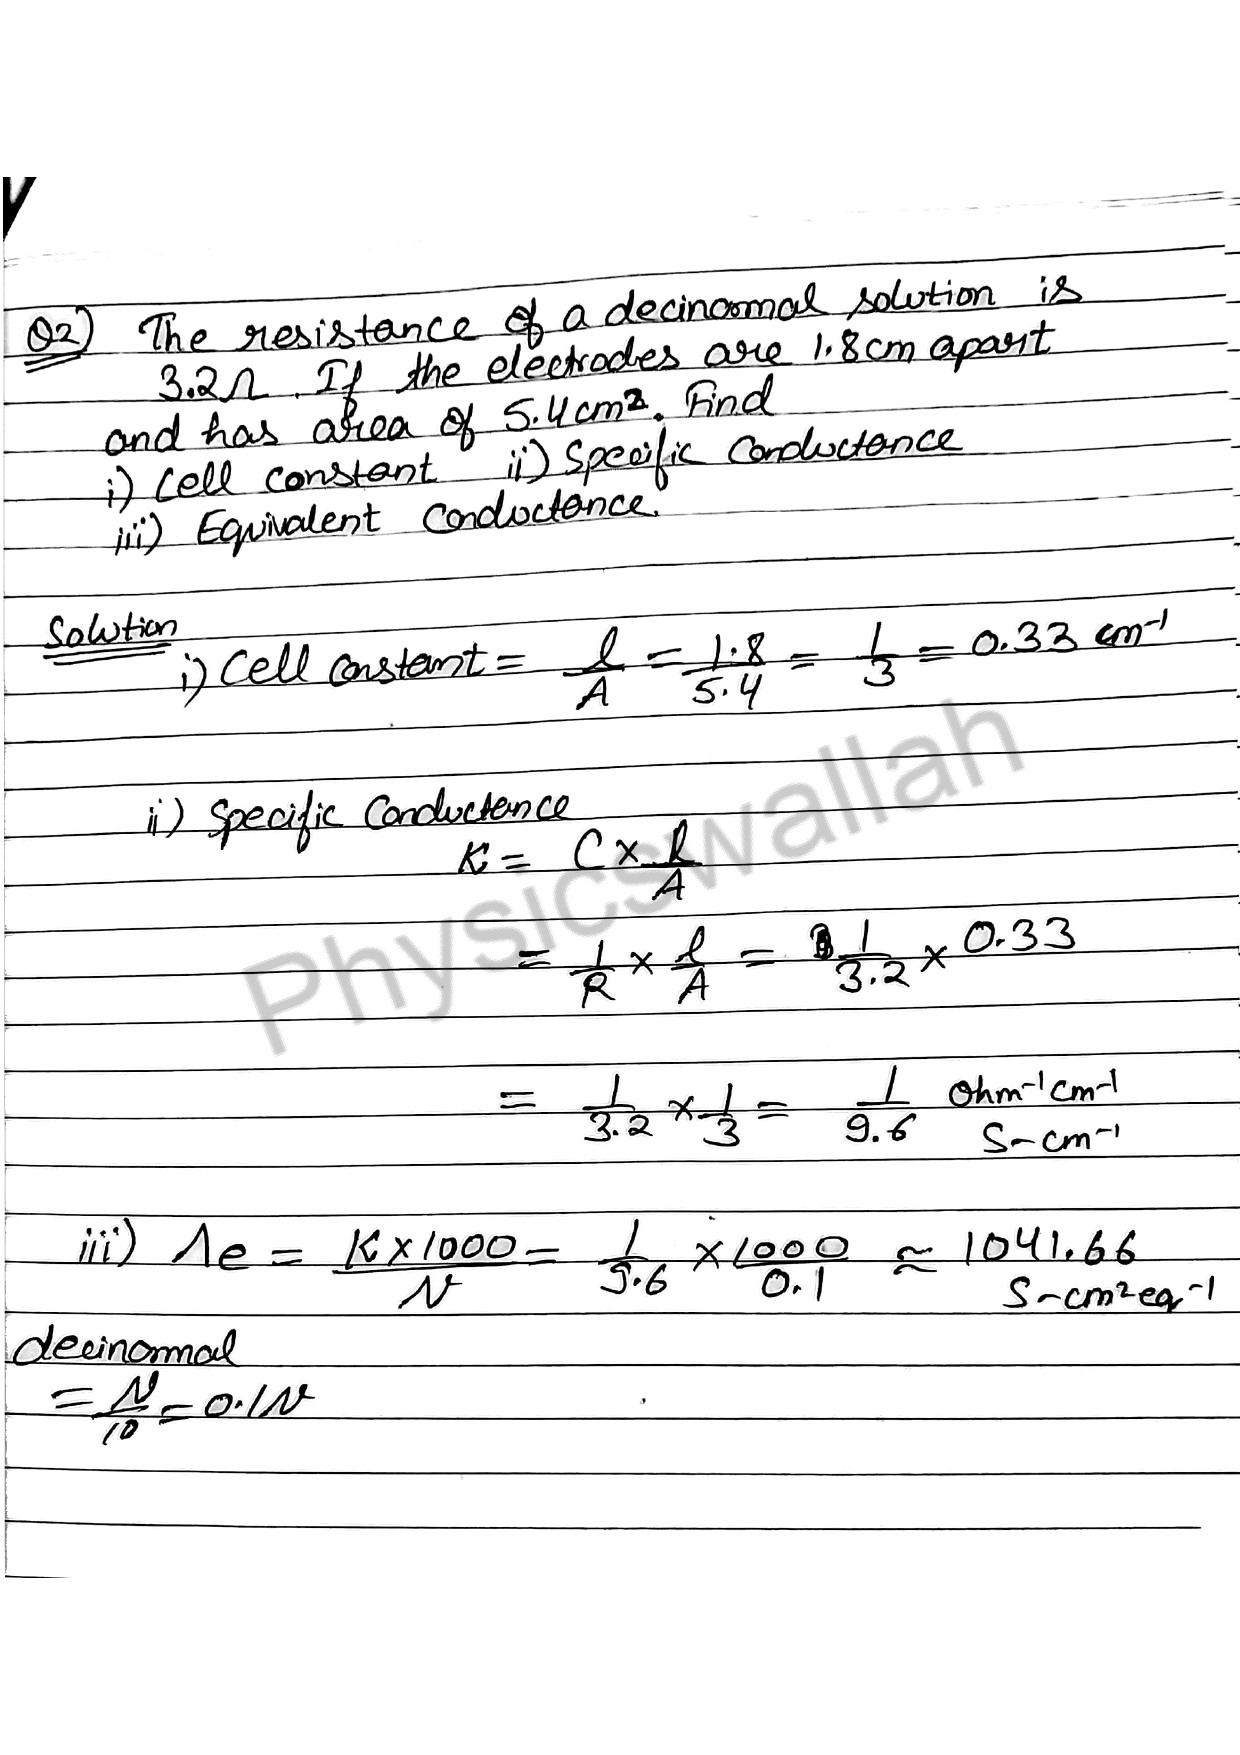 Q2) The resistance of a decinormal solution is
3.2Ω. If the electrodes are 1.8cm apart
and has area of 5.4cm². Find
i) Cell constant ii) Specific Conductance
iii) Equivalent Conductance.
Solution
i) Cell Constant = l/A = 1.8/5.4 = 1/3 = 0.33 cm⁻¹
ii) Specific Conductance
K = C × l/A
= 1/R × l/A = 1/3.2 × 0.33
= 1/3.2 × 1/3 = 1/9.6 Ohm⁻¹cm⁻¹
S-cm⁻¹
iii) Λe = K×1000/N = 1/9.6 × 1000/0.1 ≈ 1041.66
S-cm²eq⁻¹
decinormal
= N/10 = 0.1N
Physicswallah